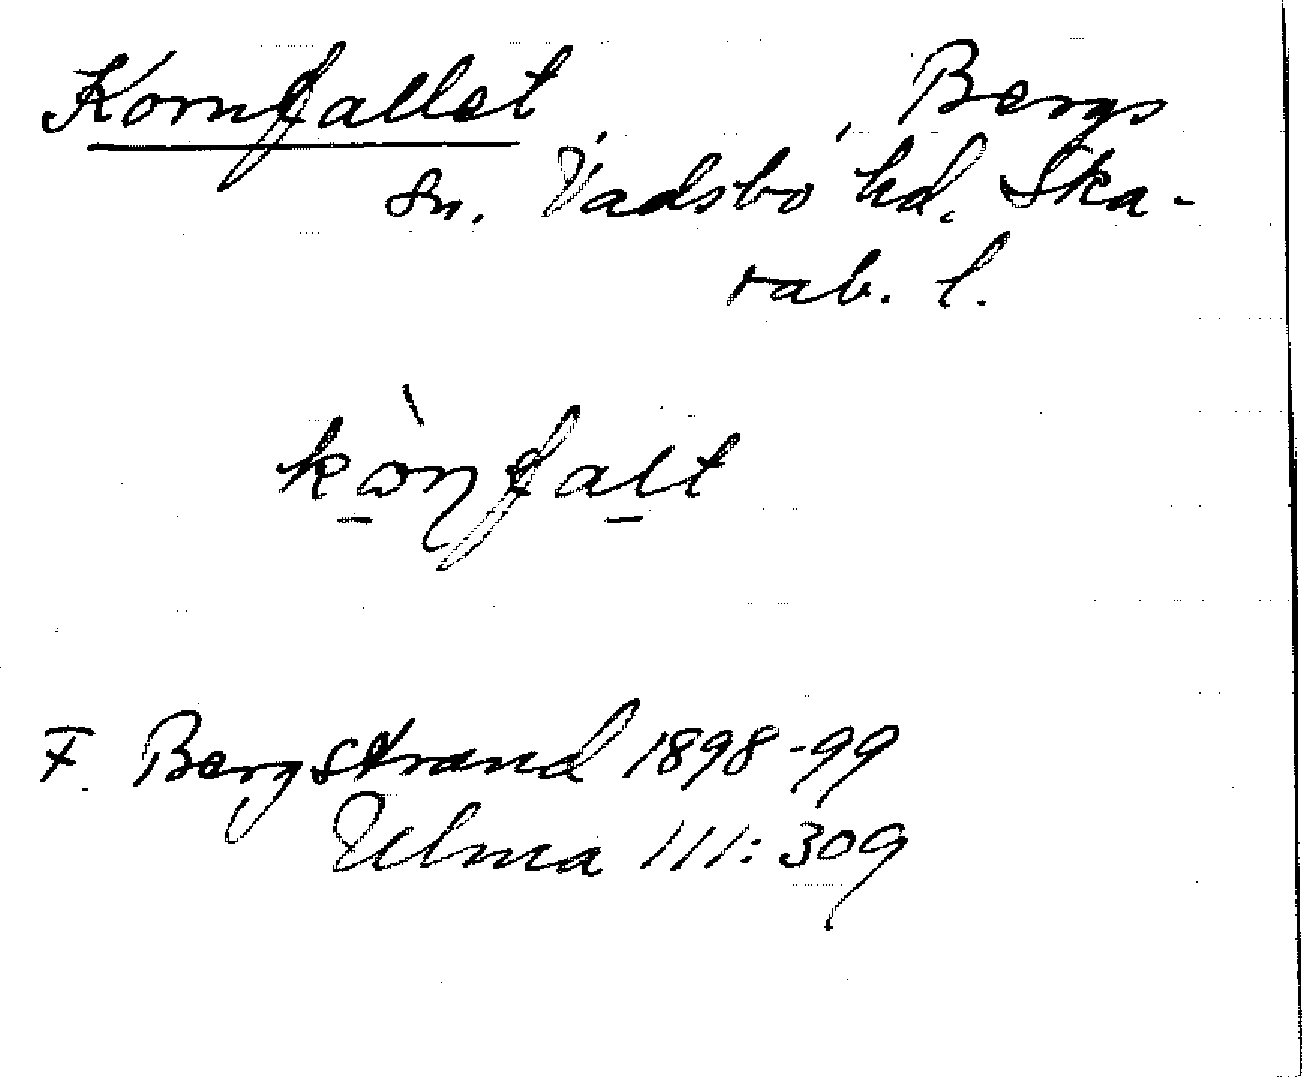 Kornfallet, Bergs
sn. Vadsbo hd. Ska-
rab. l.
kɷ̀ɳfalt
F. Bergstrand 1898-99
Ulma 111:309